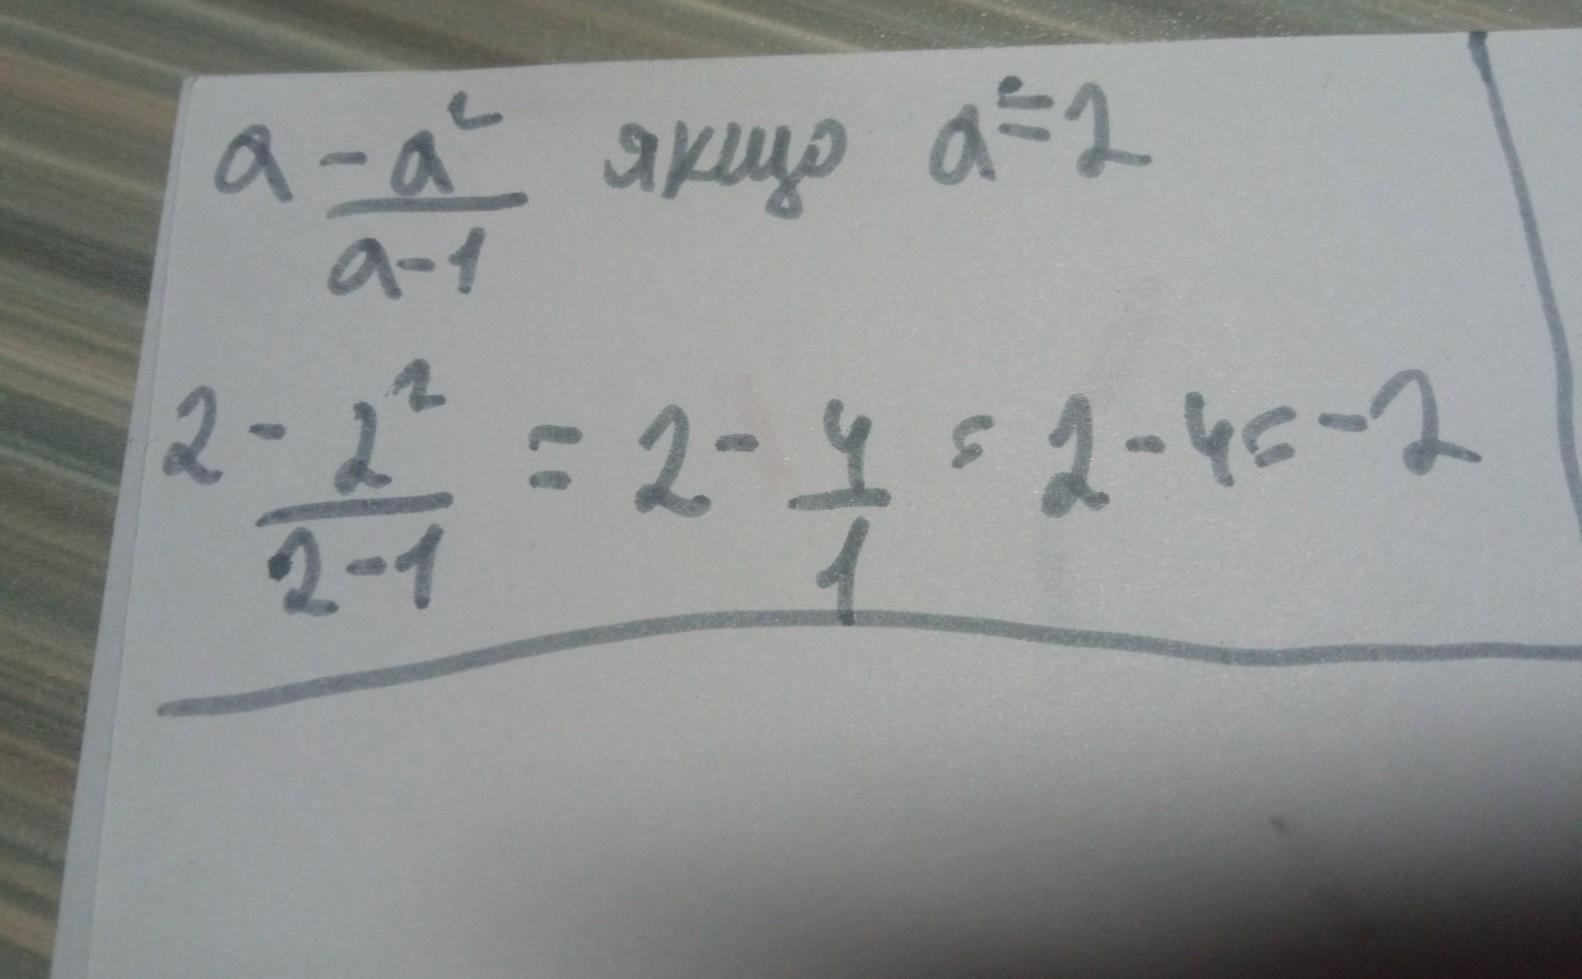 a - a²/(a-1) якщо a = 2
2 - 2²/(2-1) = 2 - 4/1 = 2 - 4 = -2